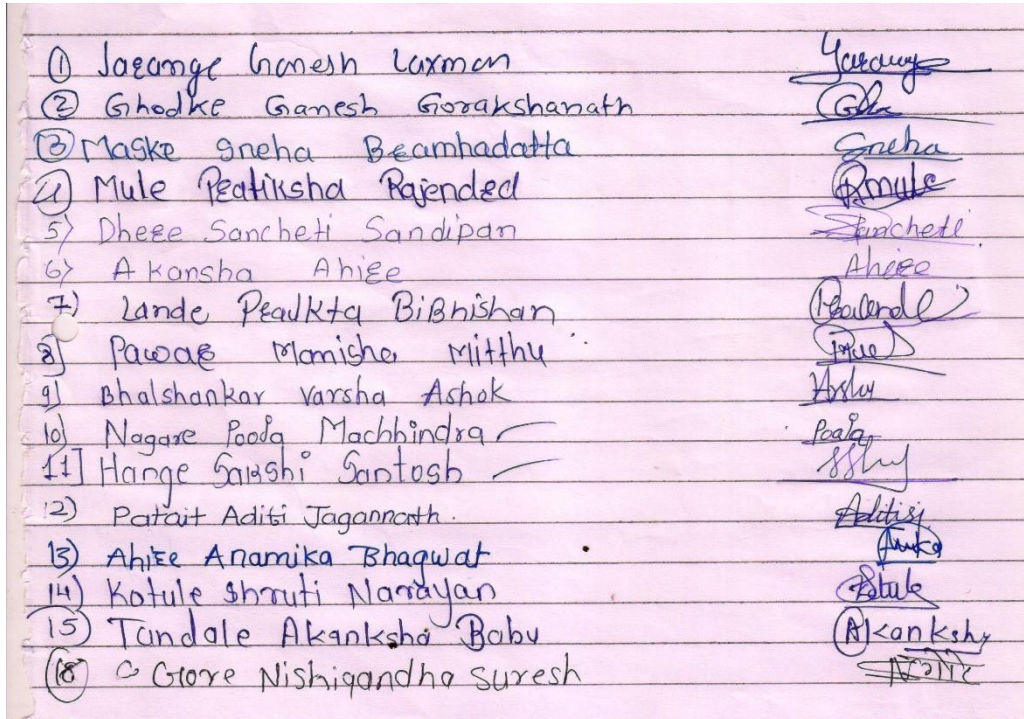 ① Jarange Ganesh Laxman
② Ghodke Ganesh Gorakshanath Gha
③ Maske Sneha Bramhadatta Sneha
④ Mule Pratiksha Rajended Rmule
5) Dhere Sancheti Sandipan Sancheti
6) Akansha Ahire Ahire
7) Lande Bibhishan
8] Pawar Mitthu
9) Bhalshankar Varsha Ashok
10) Nagare Pooja Machhindra Pooja
11] Hange Sakshi Santosh
12) Patait Aditi Jagannath. Aditi
13) Ahire Anamika Bhagwat
14) Kotule Shruti Narayan
15) Tandale Akanksha Babu Akanksha
18 Gore Nishigandha Suresh